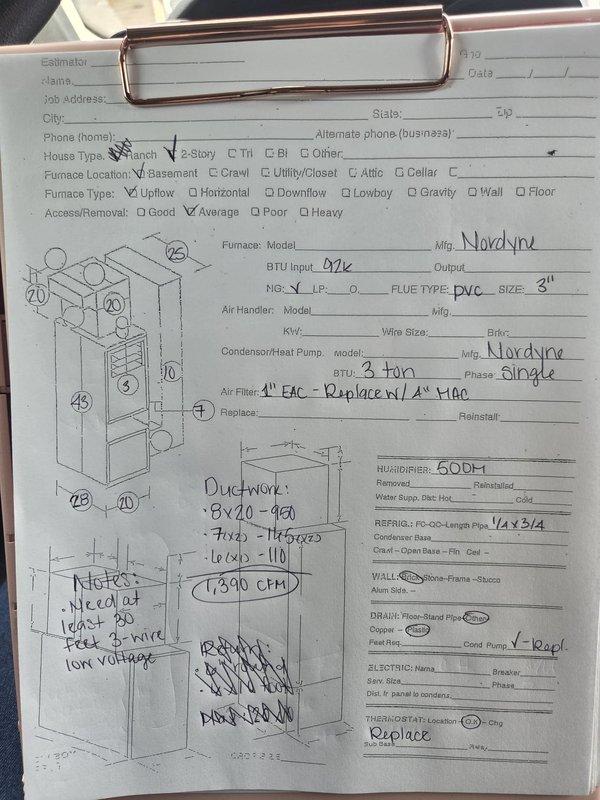 Estimator
Name Date / /
Job Address:
City: State: Zip
Phone (home): Alternate phone (business):
House Type: Ranch ✓ 2-Story Tri Bi Other:
Furnace Location: ✓ Basement Crawl Utility/Closet Attic Cellar
Furnace Type: ✓ Upflow Horizontal Downflow Lowboy Gravity Wall Floor
Access/Removal: Good ✓ Average Poor Heavy
25
20
20
3
10
43
7
28 20
Furnace: Model Mfg. Nordyne
BTU Input 92k Output
NG: ✓ LP: O. FLUE TYPE: PVC SIZE: 3"
Air Handler: Model Mfg.
KW: Wire Size: Brkr:
Condensor/Heat Pump. Model: Mfg. Nordyne
BTU: 3 ton Phase: Single
Air Filter: 1" EAC - Replace W/ 4" MAC
Replace: Reinstall:
Ductwork:
• 8x20 - 950
• 7(x2) - 145(x2)
• 6(x1) - 110
1,390 CFM
Notes:
• Need at
least 30
feet 3-wire
low voltage
HUMIDIFIER: 500M
Removed Reinstalled
Water Supp. Dist: Hot Cold
REFRIG.: FC-QC-Length Pipe 1/4 x 3/4
Condenser Base
Crawl - Open Base - Fin Ceil -
WALL: Brick-Stone-Frame-Stucco
Alum Side. -
DRAIN: Floor-Stand Pipe-Other
Copper - Plastic
Feet Req. Cond Pump ✓ - Repl.
ELECTRIC: Name Breaker
Serv. Size Phase
Dist. fr panel to condens.
THERMOSTAT: Location - O.K - Chg
Replace
Sub Base